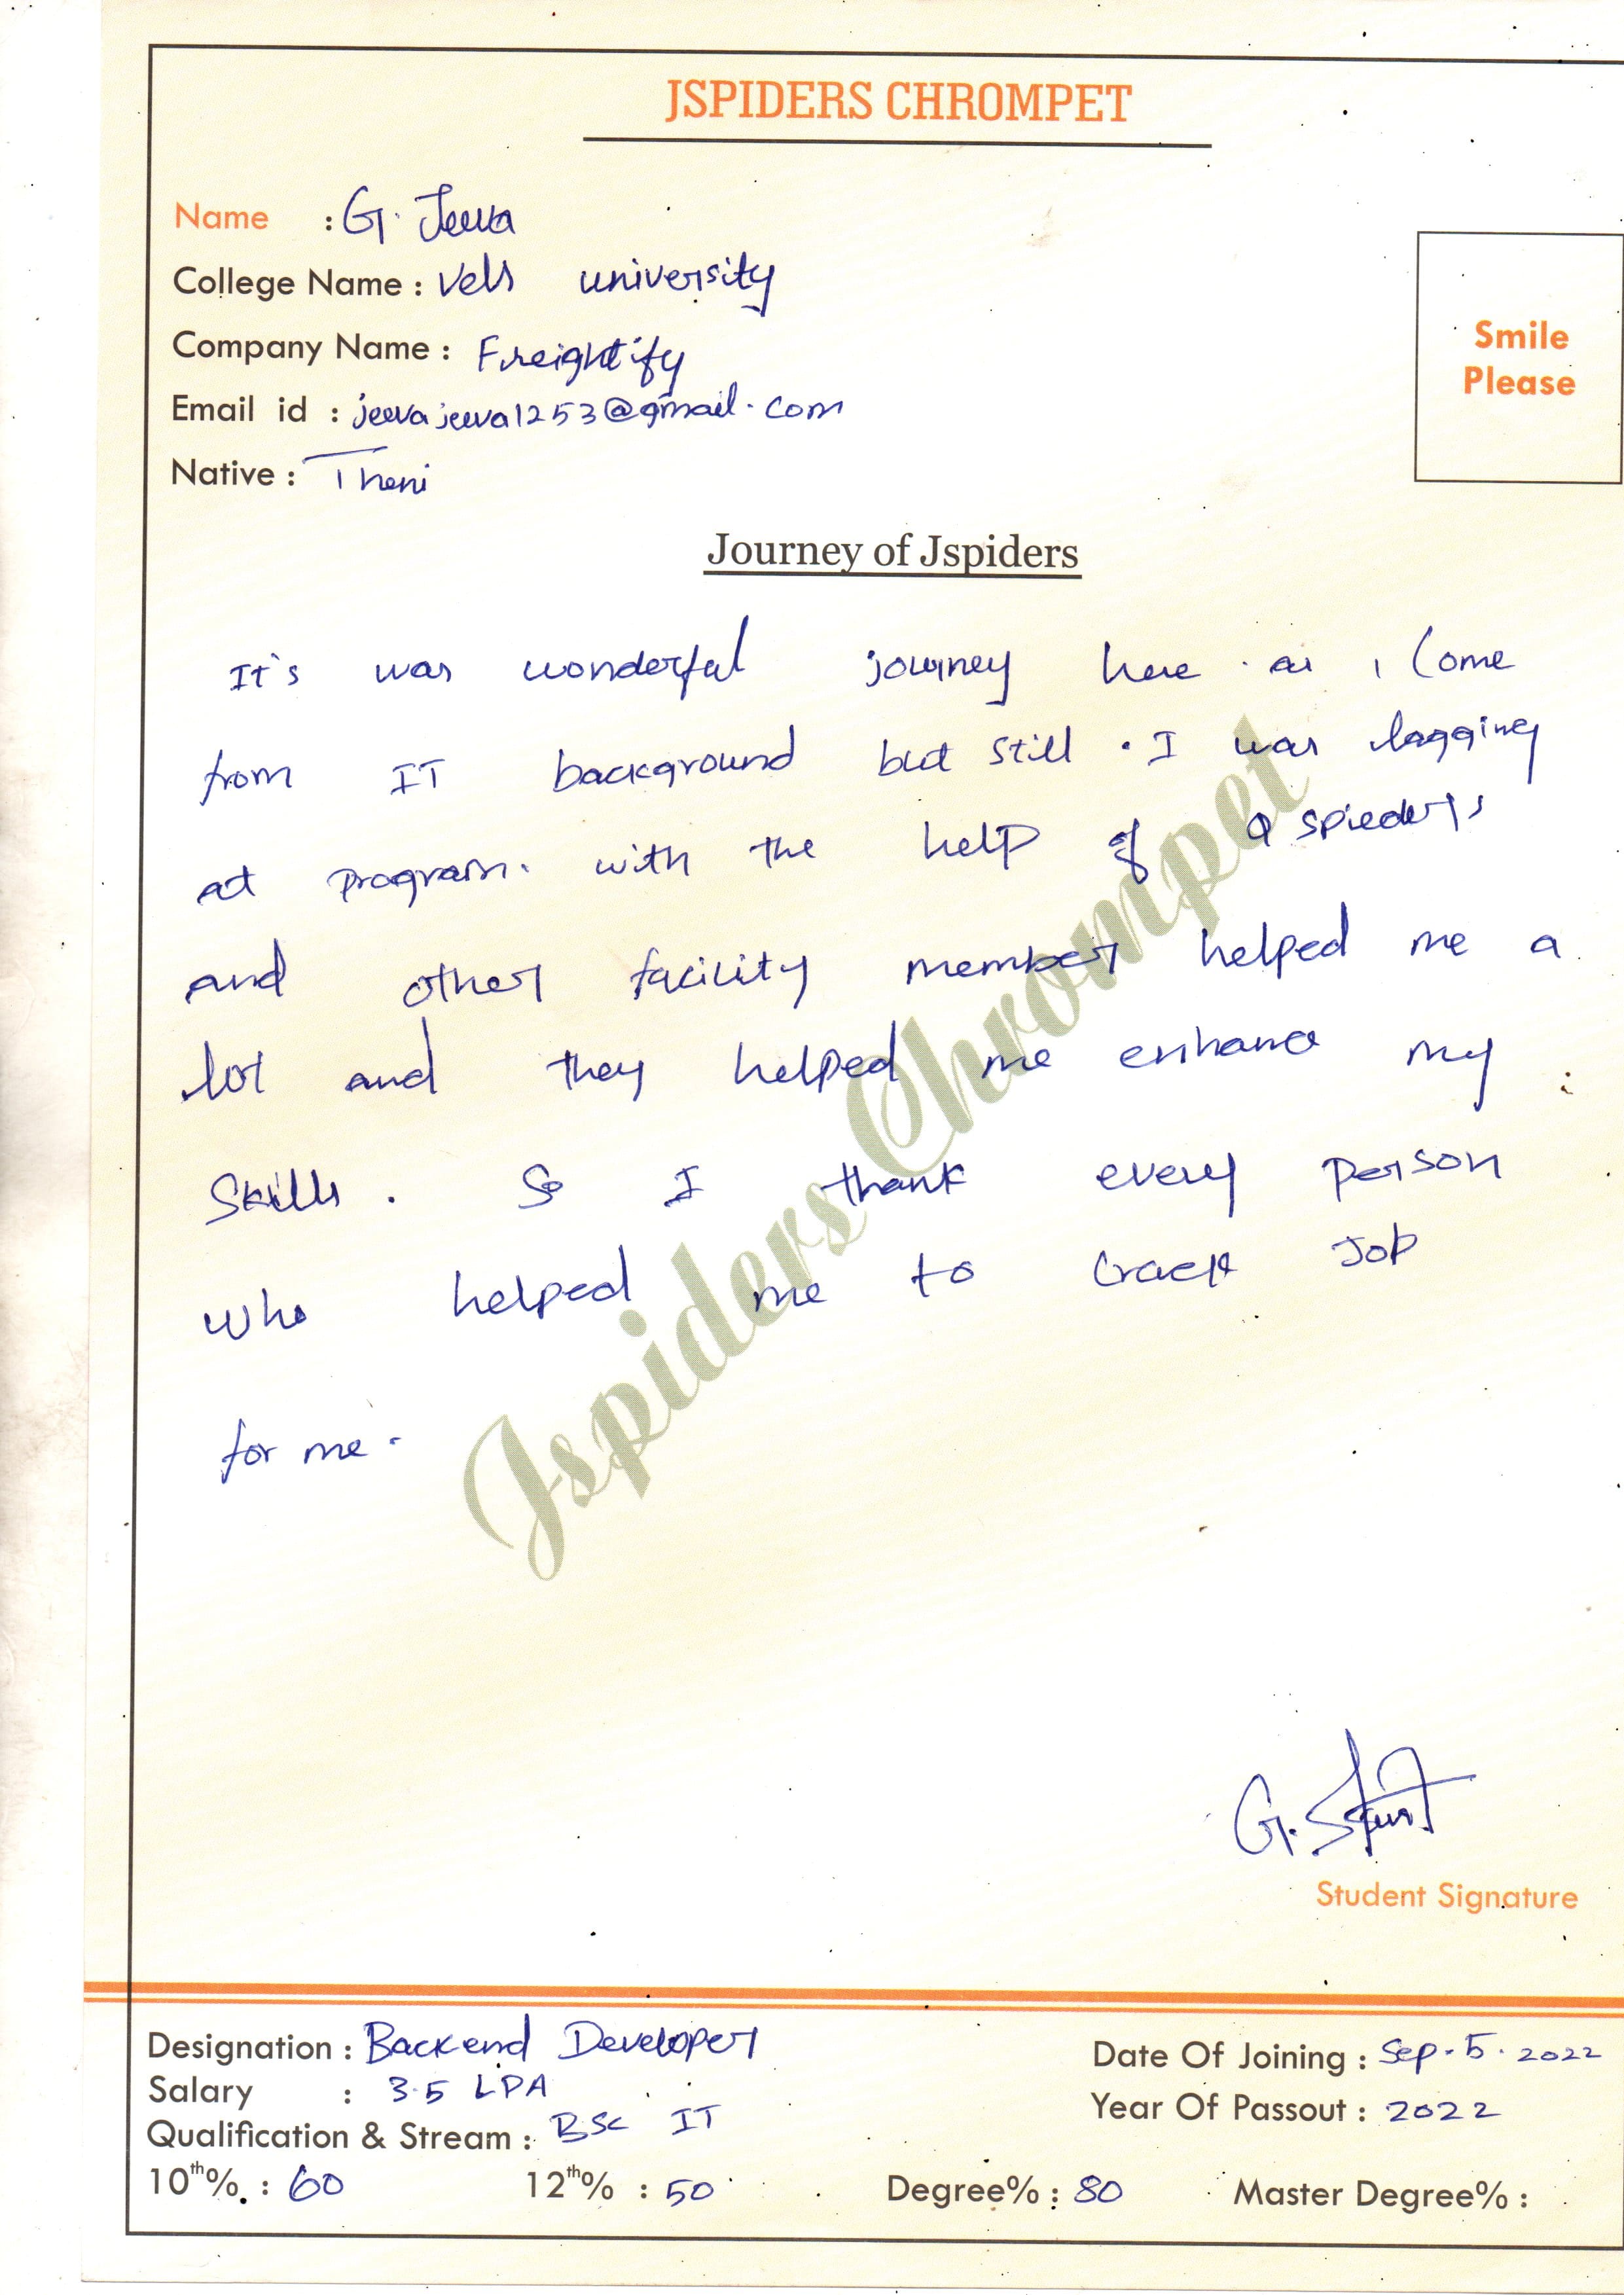 JSPIDERS CHROMPET
Name : G. Jeeva
College Name : Vels university
Company Name : Freightify
Email id : jeevajeeva1253@gmail.com
Native : Theni
Smile
Please
Journey of Jspiders
It's was wonderful journey here . as i Come
from IT background but still . I was lagging
at program. with the help of Q spieders
and other facility member helped me a
lot and they helped me enhance my
Skills . So I thank every person
who helped me to crack Job
for me .
Jspiders Chrompet
G.
Student Signature
Designation : Backend Developer
Date Of Joining : Sep . 5 . 2022
Salary : 3.5 LPA
Year Of Passout : 2022
Qualification & Stream : BSc IT
10th% : 60 12th% : 50 Degree% : 80 Master Degree% :